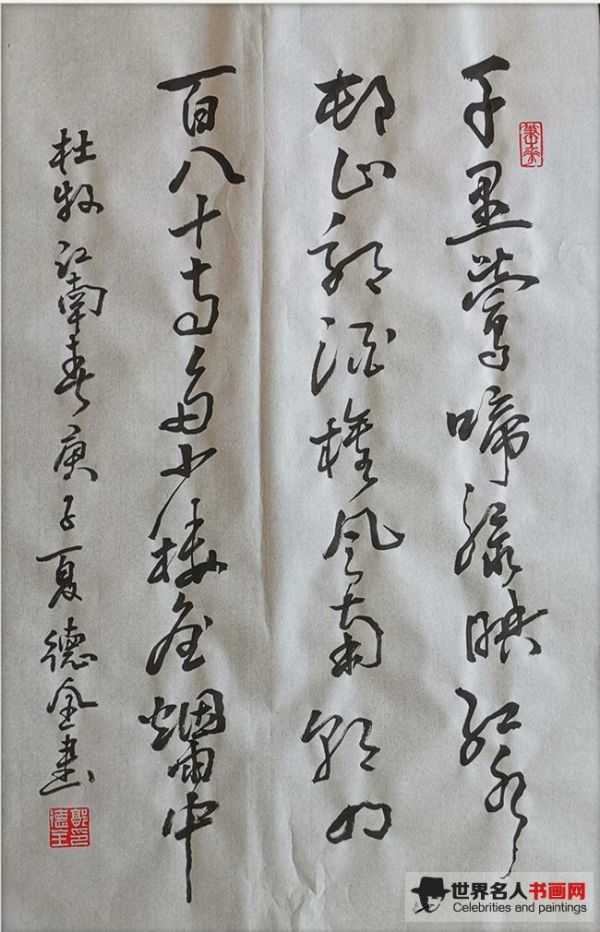 千里鶯啼綠映紅水
邨山郭酒旗風南朝四
百八十寺多少樓臺煙雨中
杜牧江南春庚子夏德全書
世界名人书画网
Celebrities and paintings